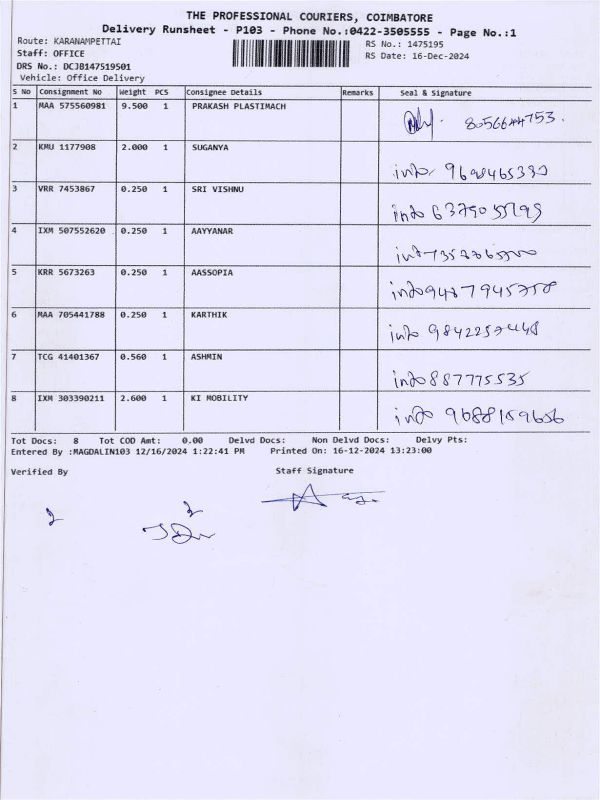 THE PROFESSIONAL COURIERS, COIMBATORE
Delivery Runsheet - P103 - Phone No.:0422-3505555 - Page No.:1
Route: KARANAMPETTAI
RS No.: 1475195
Staff: OFFICE
RS Date: 16-Dec-2024
DRS No.: DCJB147519501
Vehicle: Office Delivery
S No Consignment No Weight PCS Consignee Details Remarks Seal & Signature
1 MAA 575560981 9.500 1 PRAKASH PLASTIMACH
8056644753.
2 KMU 1177908 2.000 1 SUGANYA
info
3 VRR 7453867 0.250 1 SRI VISHNU
info
4 IXM 507552620 0.250 1 AAYYANAR
info
5 KRR 5673263 0.250 1 AASSOPIA
info
6 MAA 705441788 0.250 1 KARTHIK
info
7 TCG 41401367 0.560 1 ASHMIN
info 887775535
8 IXM 303390211 2.600 1 KI MOBILITY
info 9688159656
Tot Docs: 8 Tot COD Amt: 0.00 Delvd Docs: Non Delvd Docs: Delvy Pts:
Entered By :MAGDALIN103 12/16/2024 1:22:41 PM Printed On: 16-12-2024 13:23:00
Verified By Staff Signature